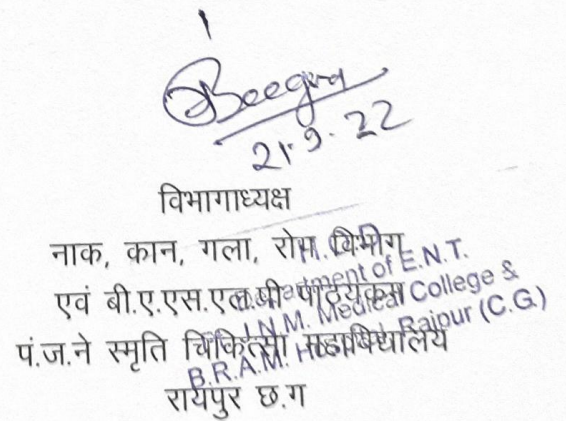 21.9.22
विभागाध्यक्ष
नाक, कान, गला, रोग विभाग
एवं बी.ए.एस.एल.पी पाठ्यक्रम
पं.ज.ने स्मृति चिकित्सा महाविद्यालय
रायपुर छ.ग
H.O.D.
Department of E.N.T.
J.N.M. Medical College &
B.R.A.M. Raipur (C.G.)